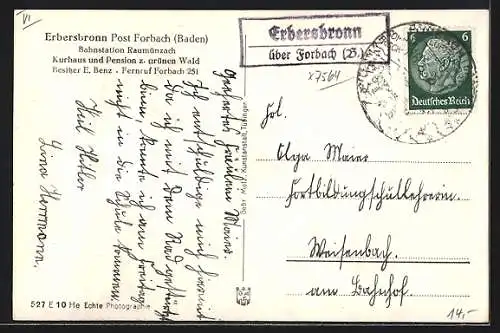 VI
Erbersbronn Post Forbach (Baden)
Bahnstation Raumünzach
Kurhaus und Pension z. grünen Wald
Besitzer E. Benz - Fernruf Forbach 251
Erbersbronn
über Forbach (B.)
x7564
6 6
Deutsches Reich
Geehrtes Fräulein Maier.
Ich entschuldige mich hiermit
da ich mit dem Rad gestürzt
bin, konnte ich am Freitag
nicht in die Schule kommen.
Heil Hitler
Lina Herrmann.
Gebr. Metz, Kunstanstalt, Tübingen
Frl.
Olga Maier
Fortbildungschullehrerin.
Weisenbach.
am Bahnhof.
527 E 10 He Echte Photographie
14.-